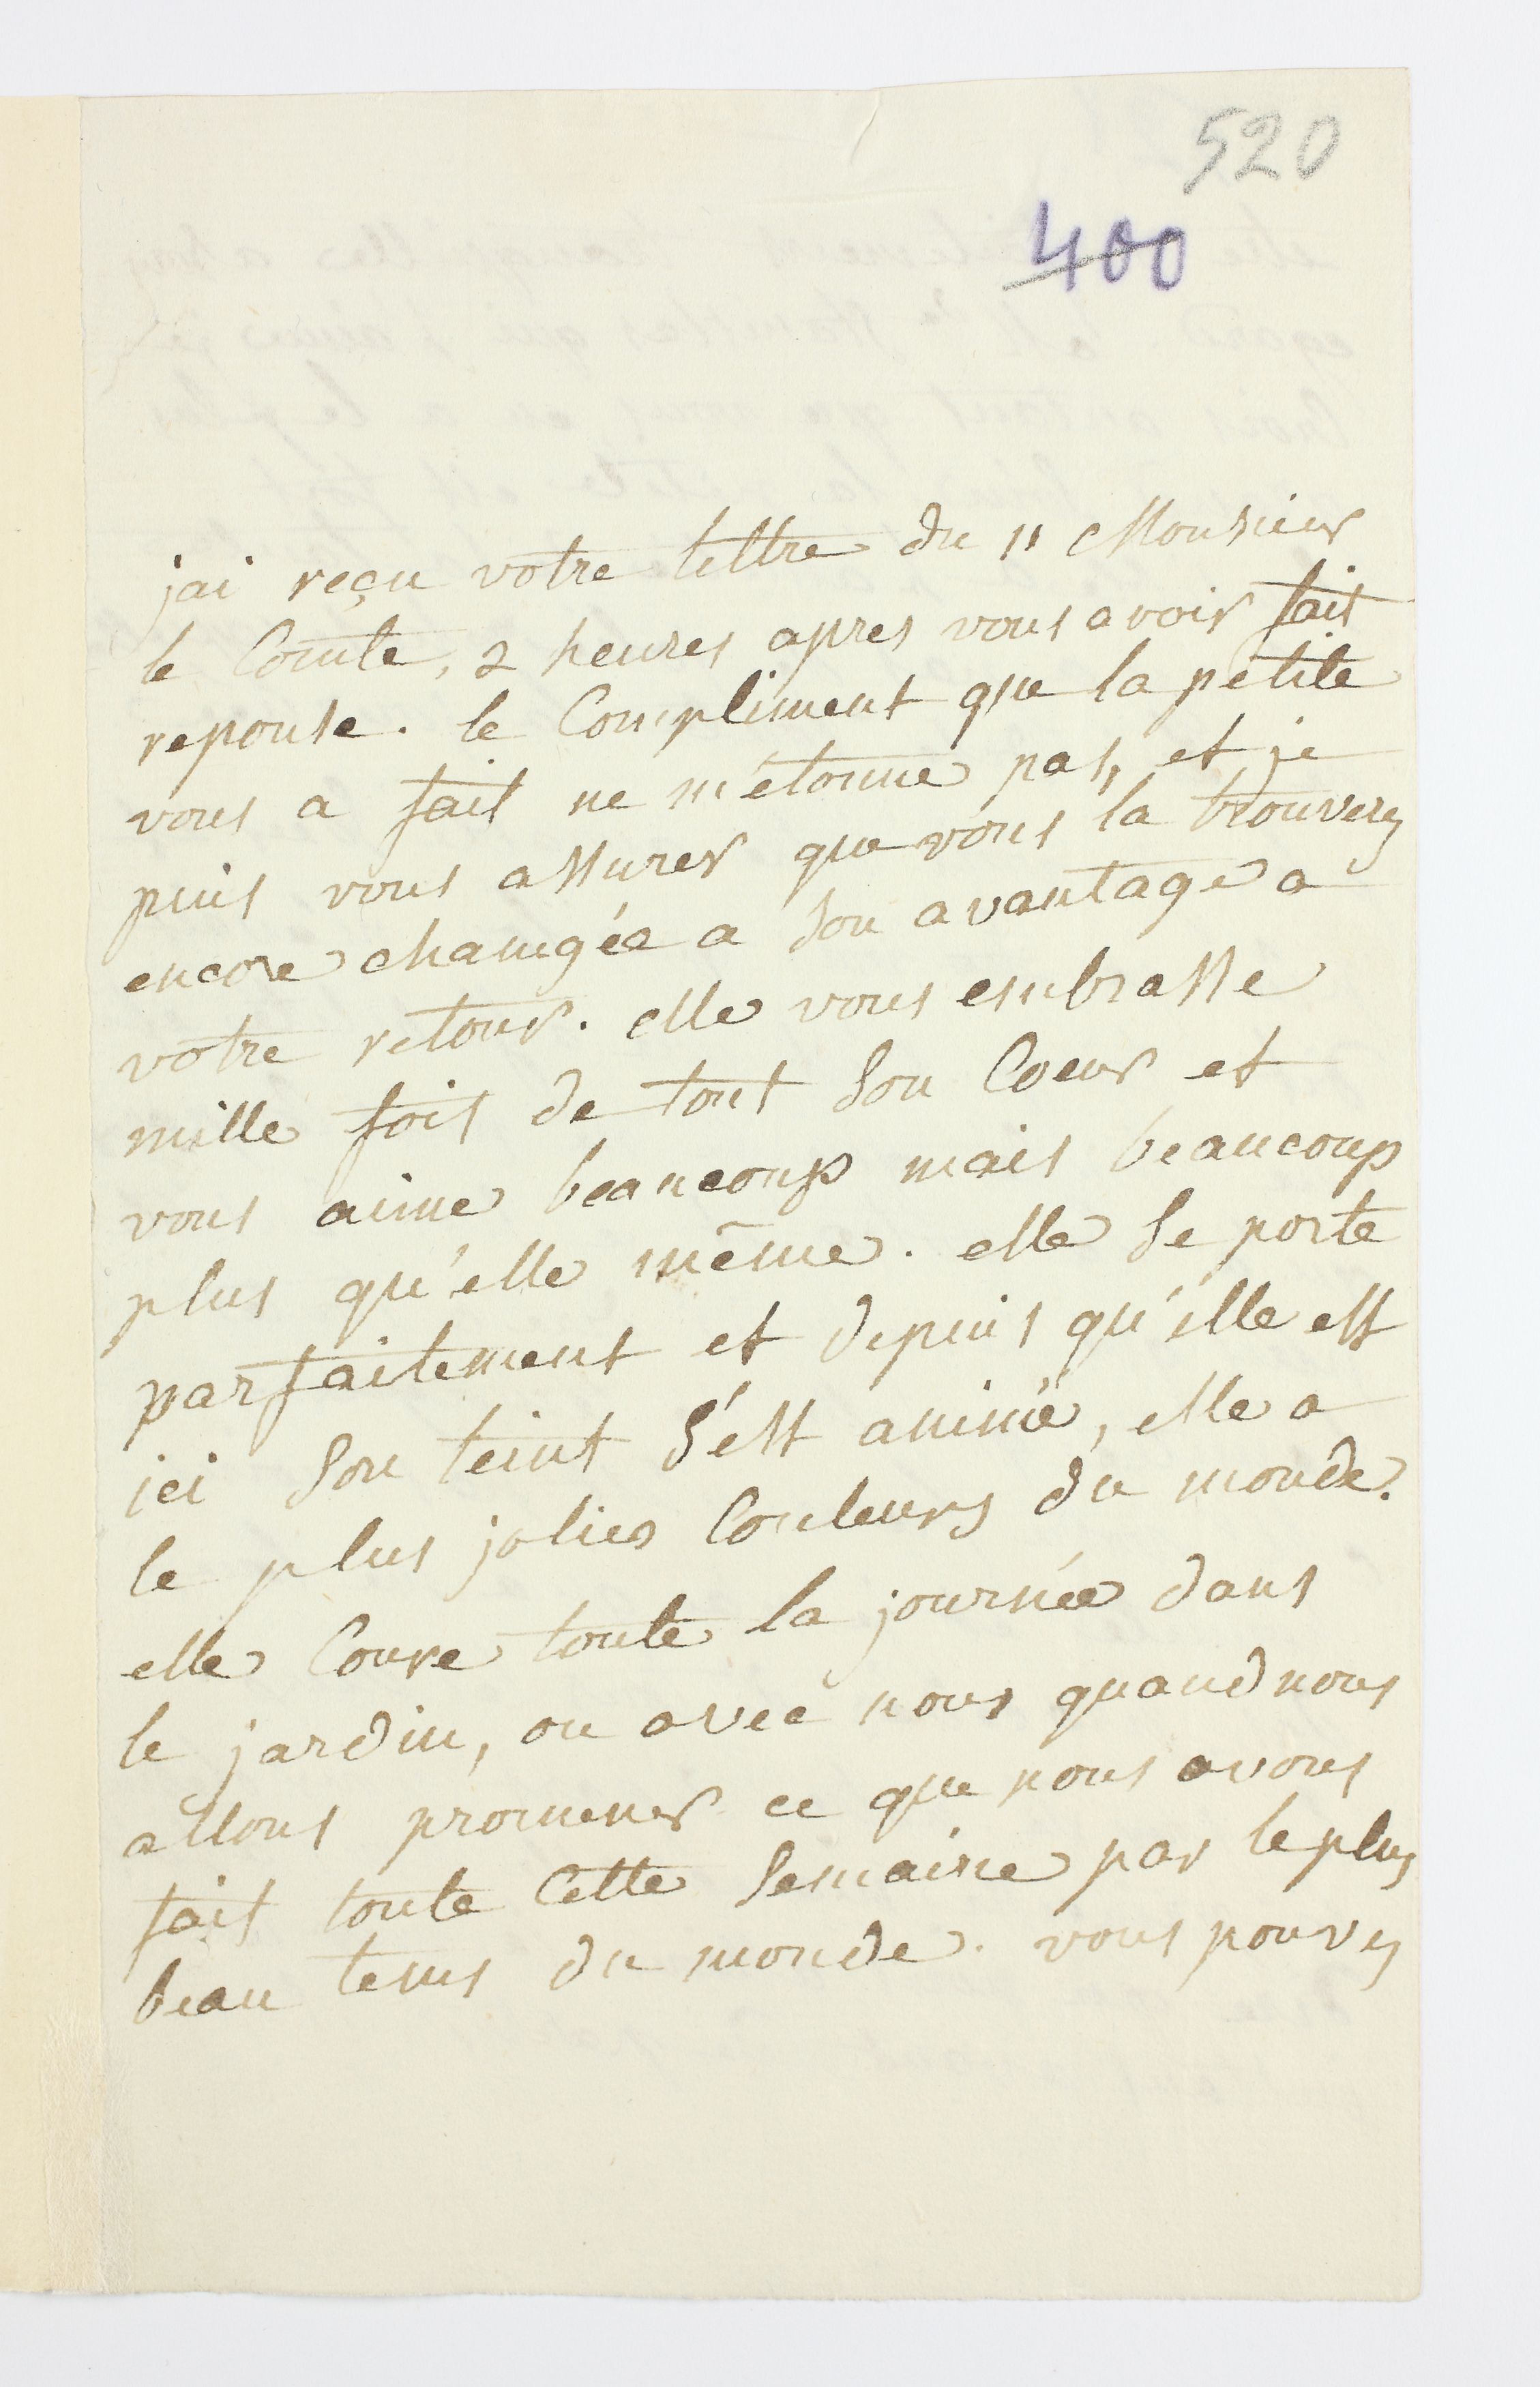 520
400
jai reçu votre lettre du 11 Monsieur
le Comte, 2 heures apres vous avoir fait
reponse. le Compliment que la petite
vous a fait ne m'étonne pas, et je
puis vous assurer que vous la trouverez
encore changée a son avantage a
votre retour. elle vous embrasse
mille fois de tout son Coeur et
vous aime beaucoup mais beaucoup
plus qu'elle même. elle se porte
parfaitement et depuis qu'elle est
ici son teint s'est animé, elle a
le plus jolies Couleurs du monde.
elle Coure toute la journée dans
le jardin, ou avec nous quand nous
allons promener ce que nous avons
fait toute Cette semaine par le plus
beau tems du monde. vous pouvez